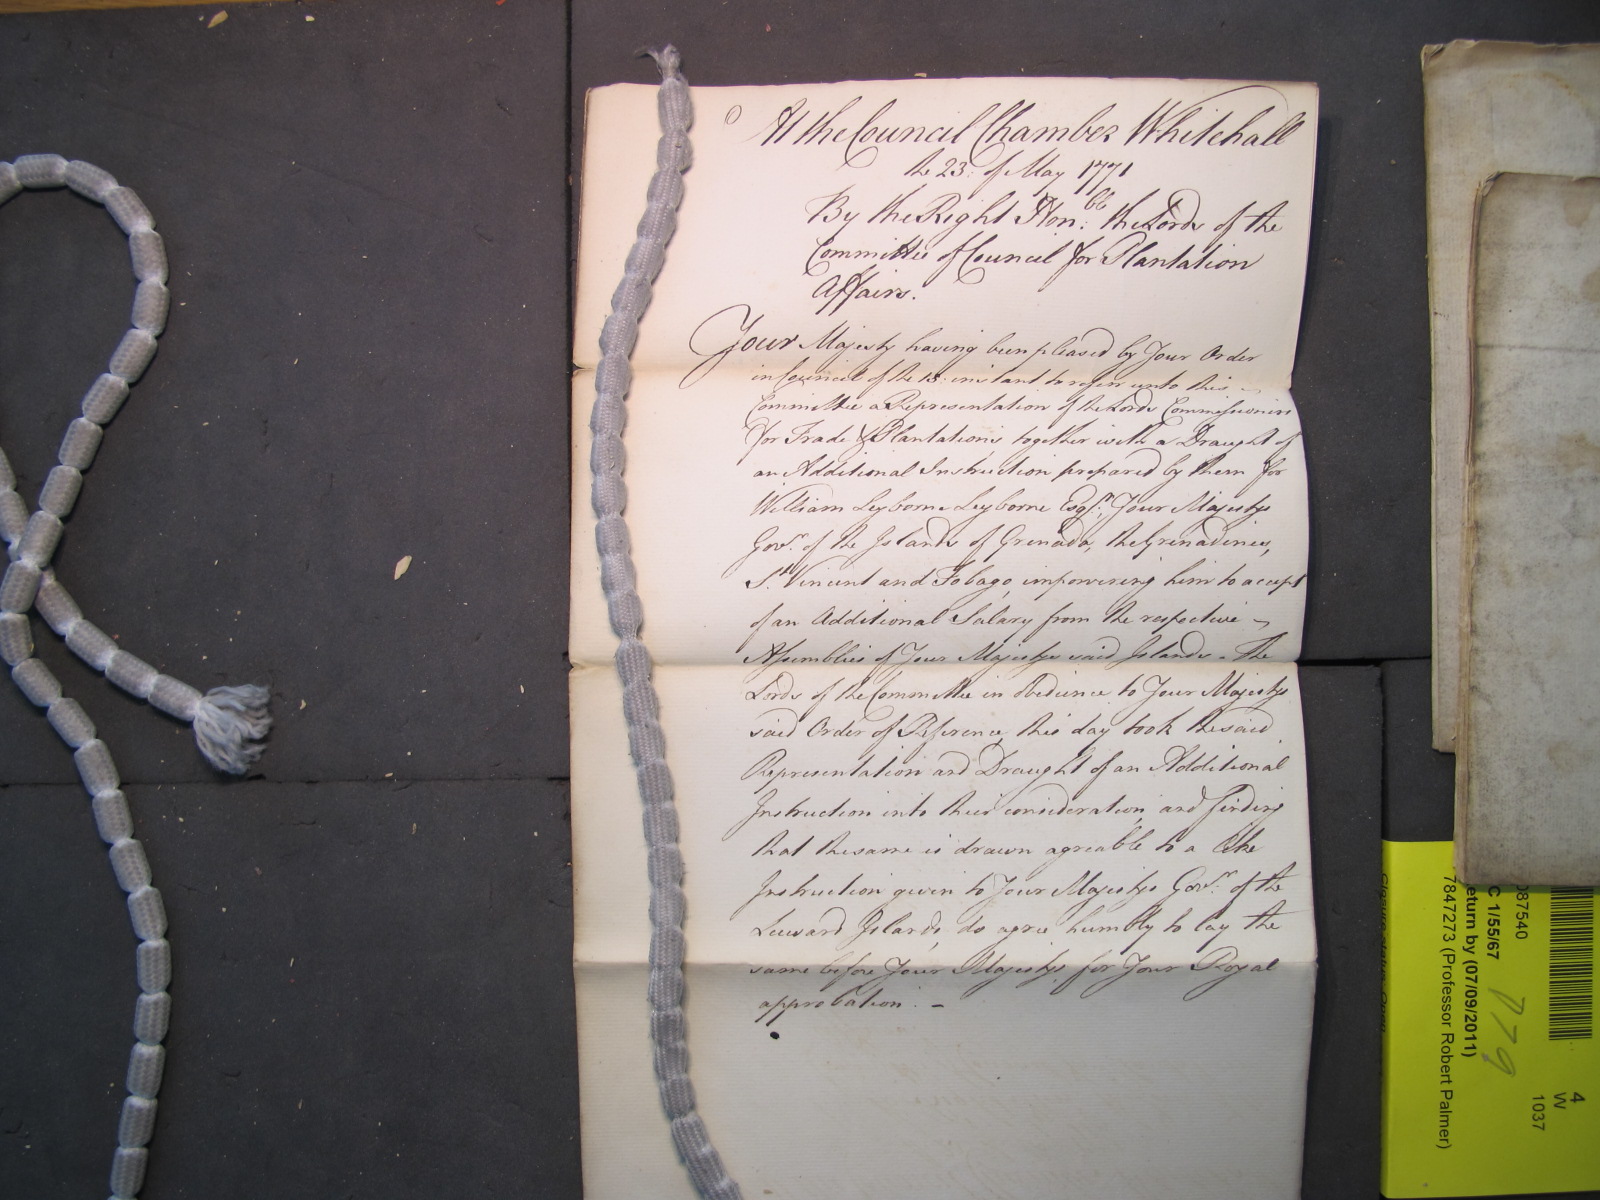 At the Council Chamber Whitehall
the 23: of May 1771
By the Right Hon:ble the Lords of the
Committee of Council for Plantation
Affairs.
Your Majesty having been pleased by Your Order
in Council of the 13: instant to refer unto this
Committee a Representation of the Lords Commissioners
for Trade & Plantations together with a Draught of
an Additional Instruction prepared by them for
William Leyborne Leyborne Esqr., Your Majestys
Govr. of the Islands of Grenada, the Grenadines,
St. Vincent and Tobago, impowering him to accept
of an Additional Salary from the respective
Assemblies of Your Majestys said Islands - The
Lords of the Committee in obedience to Your Majestys
said Order of Reference, this day took the said
Representation and Draught of an Additional
Instruction into their consideration, and finding
that the same is drawn agreable to a like
Instruction given to Your Majestys Govr. of the
Leeward Islands, do agree humbly to lay the
same before Your Majesty for Your Royal
approbation. -
4
W
1037
087540
C 1/55/67
D79
eturn by (07/09/2011)
7847273 (Professor Robert Palmer)